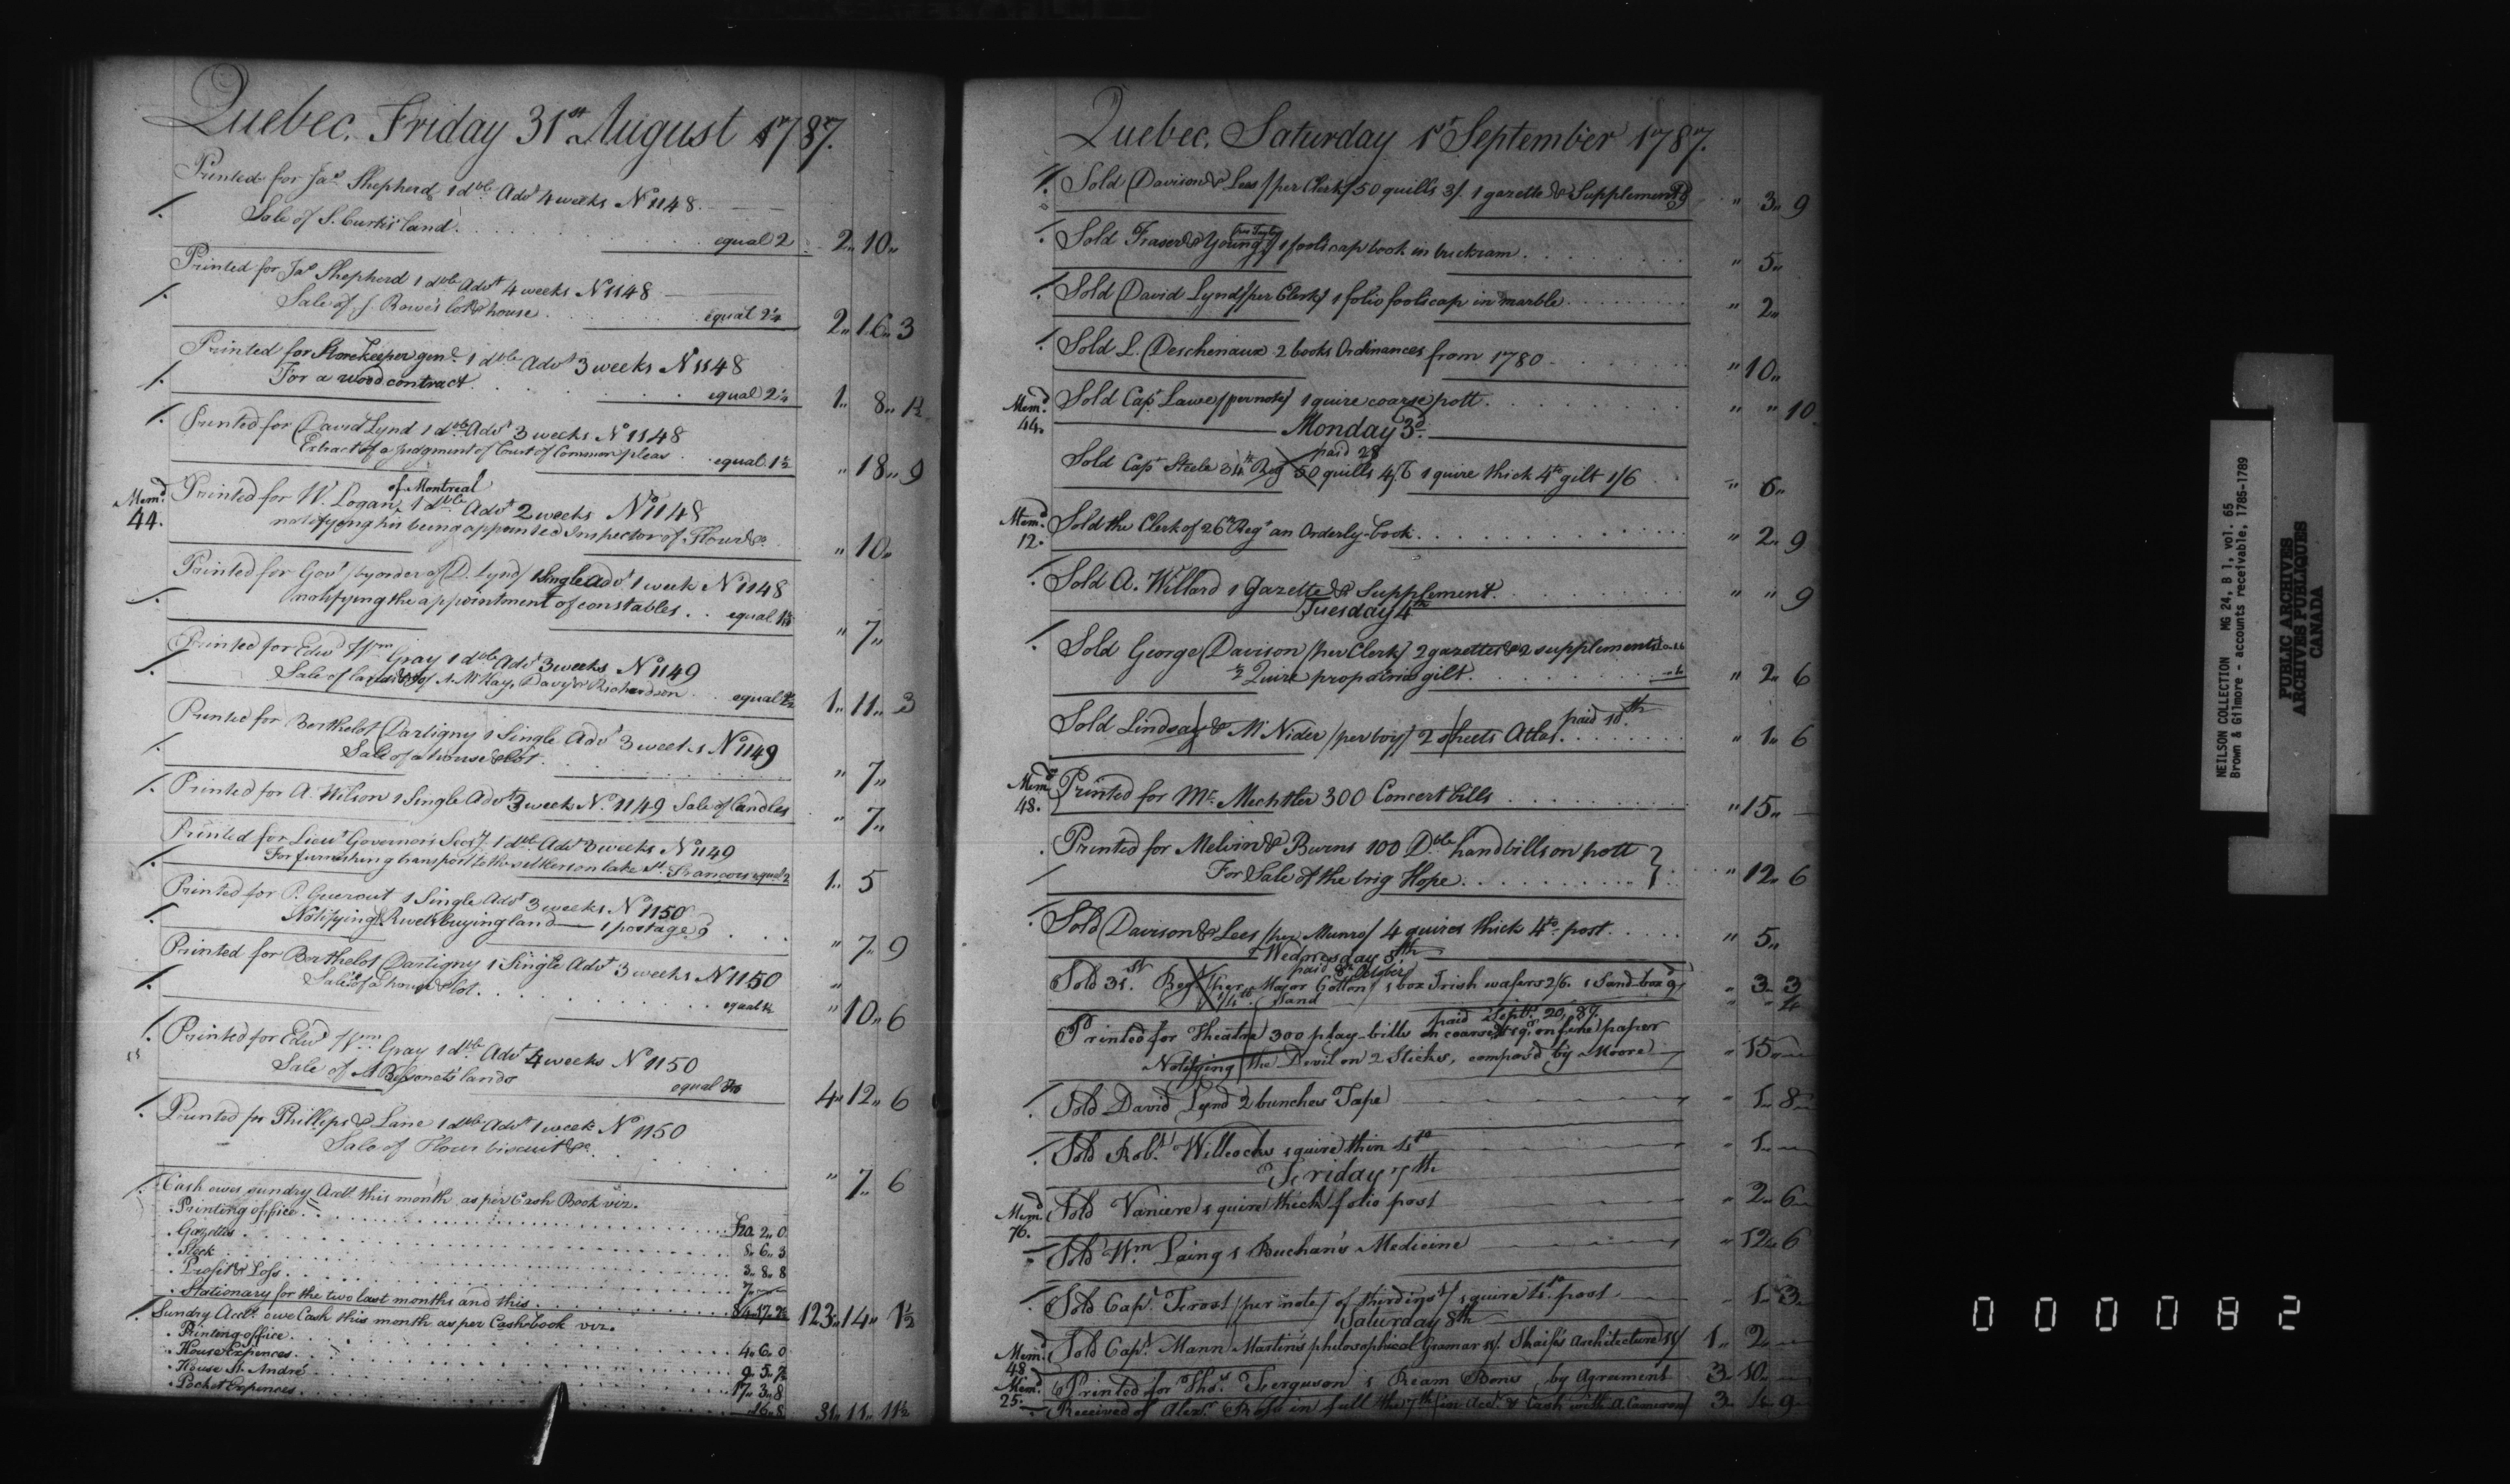 Quebec, Friday 31st August 1787.
Printed for Jas Shepherd 1 dble Advt 4 weeks No 1148
Sale of S. Curtis' land. equal 2 2" 10"
Printed for Jas Shepherd 1 dble Advt 4 weeks No 1148
Sale of J. Rowe's lot & house. equal 2¼ 2" 16" 3
Printed for Storekeeper genl. 1 dble Advt 3 weeks No 1148
For a wood contract. equal 2¼ 1" 8" 1½
Printed for David Lynd 1 dble Advt 3 weeks No 1148
Extract of a judgment of Court of Common pleas equal 1½ " 18" 9
of Montreal
Memd 44. Printed for W. Logan, 1 dble Advt 2 weeks No 1148
notifying his being appointed Inspector of Flour &c. " 10"
Printed for Govt /by order of D. Lynd/ 1 Single Advt 1 week No 1148
notifying the appointment of constables. equal " 7"
Printed for Edwd Wm Gray 1 dble Advt 3 weeks No 1149
Sale of lands of A. McKay, Davy & Richardson equal 1" 11" 3
Printed for Berthelot Dartigny 1 Single Advt 3 weeks No 1149
Sale of a house & lot. " 7"
Printed for A. Wilson 1 Single Advt 3 week No. 1149 Sale of Candles " 7"
Printed for Lieut Governor's Secy. 1 dble Advt 3 weeks No 1149
For furnishing transport to the settlers on lake St. Francois equal 2 1" 5
Printed for P. Guerout 1 Single Advt 3 weeks No 1150
Notifying buying land — 1 postage 9 " 7" 9
Printed for Berthelot Dartigny 1 Single Advt 3 weeks No 1150
Sale of a house & lot. equal " 10" 6
Printed for Edwd Wm Gray 1 dble Advt 4 weeks No 1150
Sale of lands equal 4" 12" 6
Printed for Phillips & Lane 1 dble Advt 1 week No 1150
Sale of Flour biscuit &c. " 7" 6
Cash owes sundry Acct. this month as per Cash Book viz.
Printing office. 2" 0
Gazettes. 6" 3
Stock 3" 8" 8
Profit & Loss. 7"
Stationary for the two last months and this. 123" 14" 1½
Sundry Acct. owe Cash this month as per Cash book viz.
Printing office. 4" 6" 0
House Expences. 9" 5" 7½
House St. André 17" 3" 8
Pocket Expences. 16" 8 31" 11" 11½
Quebec, Saturday 1st September 1787.
Sold Davison & Lees /per Clerk/ 50 quills 3/. 1 gazette & Supplement /9 " 3" 9
Sold Fraser & Young 1 foolscap book in buckram. " 5"
Sold David Lynd /per Clerk/ 1 folio foolscap in marble " 2"
Sold L. Deschenaux 2 books Ordinances from 1780 " 10"
Memd 44. Sold Capt Lawe /per note/ 1 quire coarse pott. " " 10
Monday 3d.
paid 28
Sold Capt Steele 34th Regt 50 quills 4/6 1 quire thick 4to gilt 1/6 " 6"
Memd 12. Sold the Clerk of 26th Regt an Orderly-book. " 2" 9
Sold A. Willard 1 Gazette & Supplement. " " 9
Tuesday 4th
Sold George Davison /per Clerk/ 2 gazettes & 2 supplements
½ Quire prop gilt. " 2" 6
Sold Lindsay & McNider /per boy/ 2 sheets Atlas. paid 18th " 1" 6
Memd 48. Printed for Mr. Mechtler 300 Concert bills " 15"
Printed for Melvin & Burns 100 Dble handbills on pott
For Sale of the brig Hope. " 12" 6
Sold Davison & Lees /per Munro/ 4 quires thick 4to post. " 5"
Wednesday 5th
paid 8th October
Sold 31st Regt /per Major Cotton/ 1 box Irish wafers 2/6. 1 Sand-box 9/ " 3" 3
Sand " " 4
paid Septr. 20, 87.
Printed for Theatre 300 play-bills on coarse on fine paper
Notifying the Devil on 2 Sticks, compos'd by Moore " 15
Sold David Lynd 2 bunches Tape " 1" 8
Sold Robt. Willcocks 1 quire thin 4to " 1"
Friday 7th
Memd 76. Sold Vaniere 1 quire thick folio post " 2" 6
Sold Wm Laing 1 Buchan's Medicine " 12" 6
Sold Capt. Frost /per note/ 1 quire 4to. post " 1" 3
Saturday 8th
Memd 48 Sold Capt. Mann Martin's philosophical Gramar Architecture 1" 2"
Memd 25. Printed for Thos. Ferguson 1 Ream Bons by Agreament 3" 10"
Received of Alexr. Ross in full the 7th in Acct. & Cash with A. Cameron 3" 4" 9
NEILSON COLLECTION MG 24, B 1, vol. 65
Brown & Gilmore - accounts receivable, 1785-1789
PUBLIC ARCHIVES
ARCHIVES PUBLIQUES
CANADA
000082